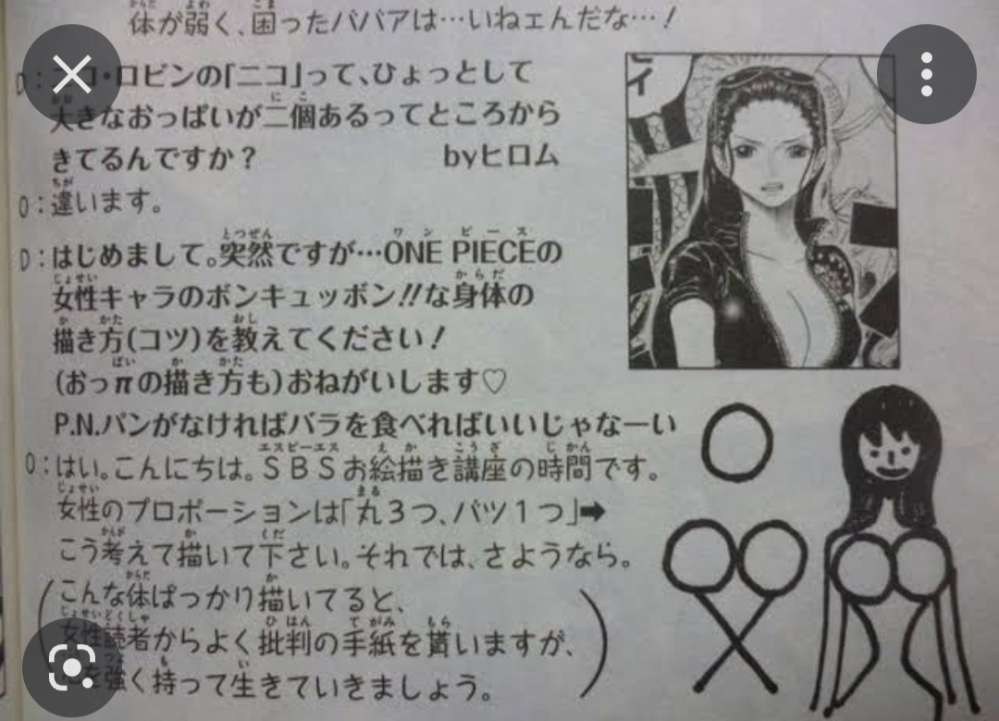 体が弱く、困ったババアは…いねェんだな…！
D：ニコ・ロビンの「ニコ」って、ひょっとして
大きなおっぱいが二個あるってところから
きてるんですか？ byヒロム
O：違います。
D：はじめまして。突然ですが…ONE PIECEの
女性キャラのボンキュッボン!!な身体の
描き方(コツ)を教えてください！
(おっπの描き方も)おねがいします♡
P.N.パンがなければバラを食べればいいじゃなーい
O：はい。こんにちは。SBSお絵描き講座の時間です。
女性のプロポーションは「丸3つ、バツ1つ」➡
こう考えて描いて下さい。それでは、さようなら。
(こんな体ばっかり描いてると、
女性読者からよく批判の手紙を貰いますが、
を強く持って生きていきましょう。)